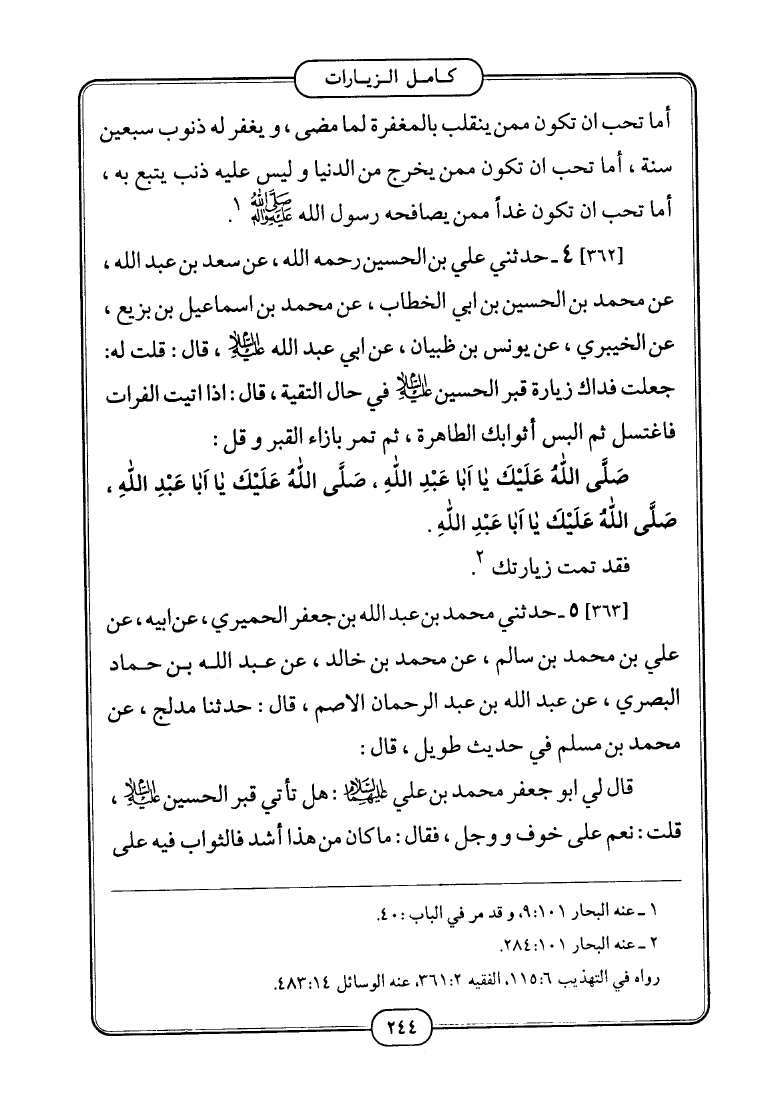 كامل الزيارات
أما تحب ان تكون ممن ينقلب بالمغفرة لما مضى ، و يغفر له ذنوب سبعين
سنة ، أما تحب ان تكون ممن يخرج من الدنيا و ليس عليه ذنب يتبع به ،
أما تحب ان تكون غداً ممن يصافحه رسول الله صلى الله عليه وآله ١.
[٣٦٢] ٤ ـ حدثني علي بن الحسين رحمه الله ، عن سعد بن عبد الله ،
عن محمد بن الحسين بن ابي الخطاب ، عن محمد بن اسماعيل بن بزيع ،
عن الخيبري ، عن يونس بن ظبيان ، عن ابي عبد الله عليه السلام ، قال : قلت له:
جعلت فداك زيارة قبر الحسين عليه السلام في حال التقية ، قال : اذا اتيت الفرات
فاغتسل ثم البس أثوابك الطاهرة ، ثم تمر بازاء القبر و قل :
صَلَّى اللّٰهُ عَلَيْكَ يٰا اَبٰا عَبْدِ اللّٰهِ ، صَلَّى اللّٰهُ عَلَيْكَ يٰا اَبٰا عَبْدِ اللّٰهِ ،
صَلَّى اللّٰهُ عَلَيْكَ يٰا اَبٰا عَبْدِ اللّٰهِ .
فقد تمت زيارتك ٢.
[٣٦٣] ٥ ـ حدثني محمد بن عبد الله بن جعفر الحميري ، عن ابيه ، عن
علي بن محمد بن سالم ، عن محمد بن خالد ، عن عبد الله بن حماد
البصري ، عن عبد الله بن عبد الرحمان الاصم ، قال : حدثنا مدلج ، عن
محمد بن مسلم في حديث طويل ، قال :
قال لي ابو جعفر محمد بن علي عليهما السلام : هل تأتي قبر الحسين عليه السلام ،
قلت : نعم على خوف و وجل ، فقال : ماكان من هذا أشد فالثواب فيه على
١ ـ عنه البحار ١٠١:٩، و قد مر في الباب : ٤٠.
٢ ـ عنه البحار ١٠١:٢٨٤.
رواه في التهذيب ٦:١١٥، الفقيه ٢:٣٦١، عنه الوسائل ١٤:٤٨٣.
٢٤٤